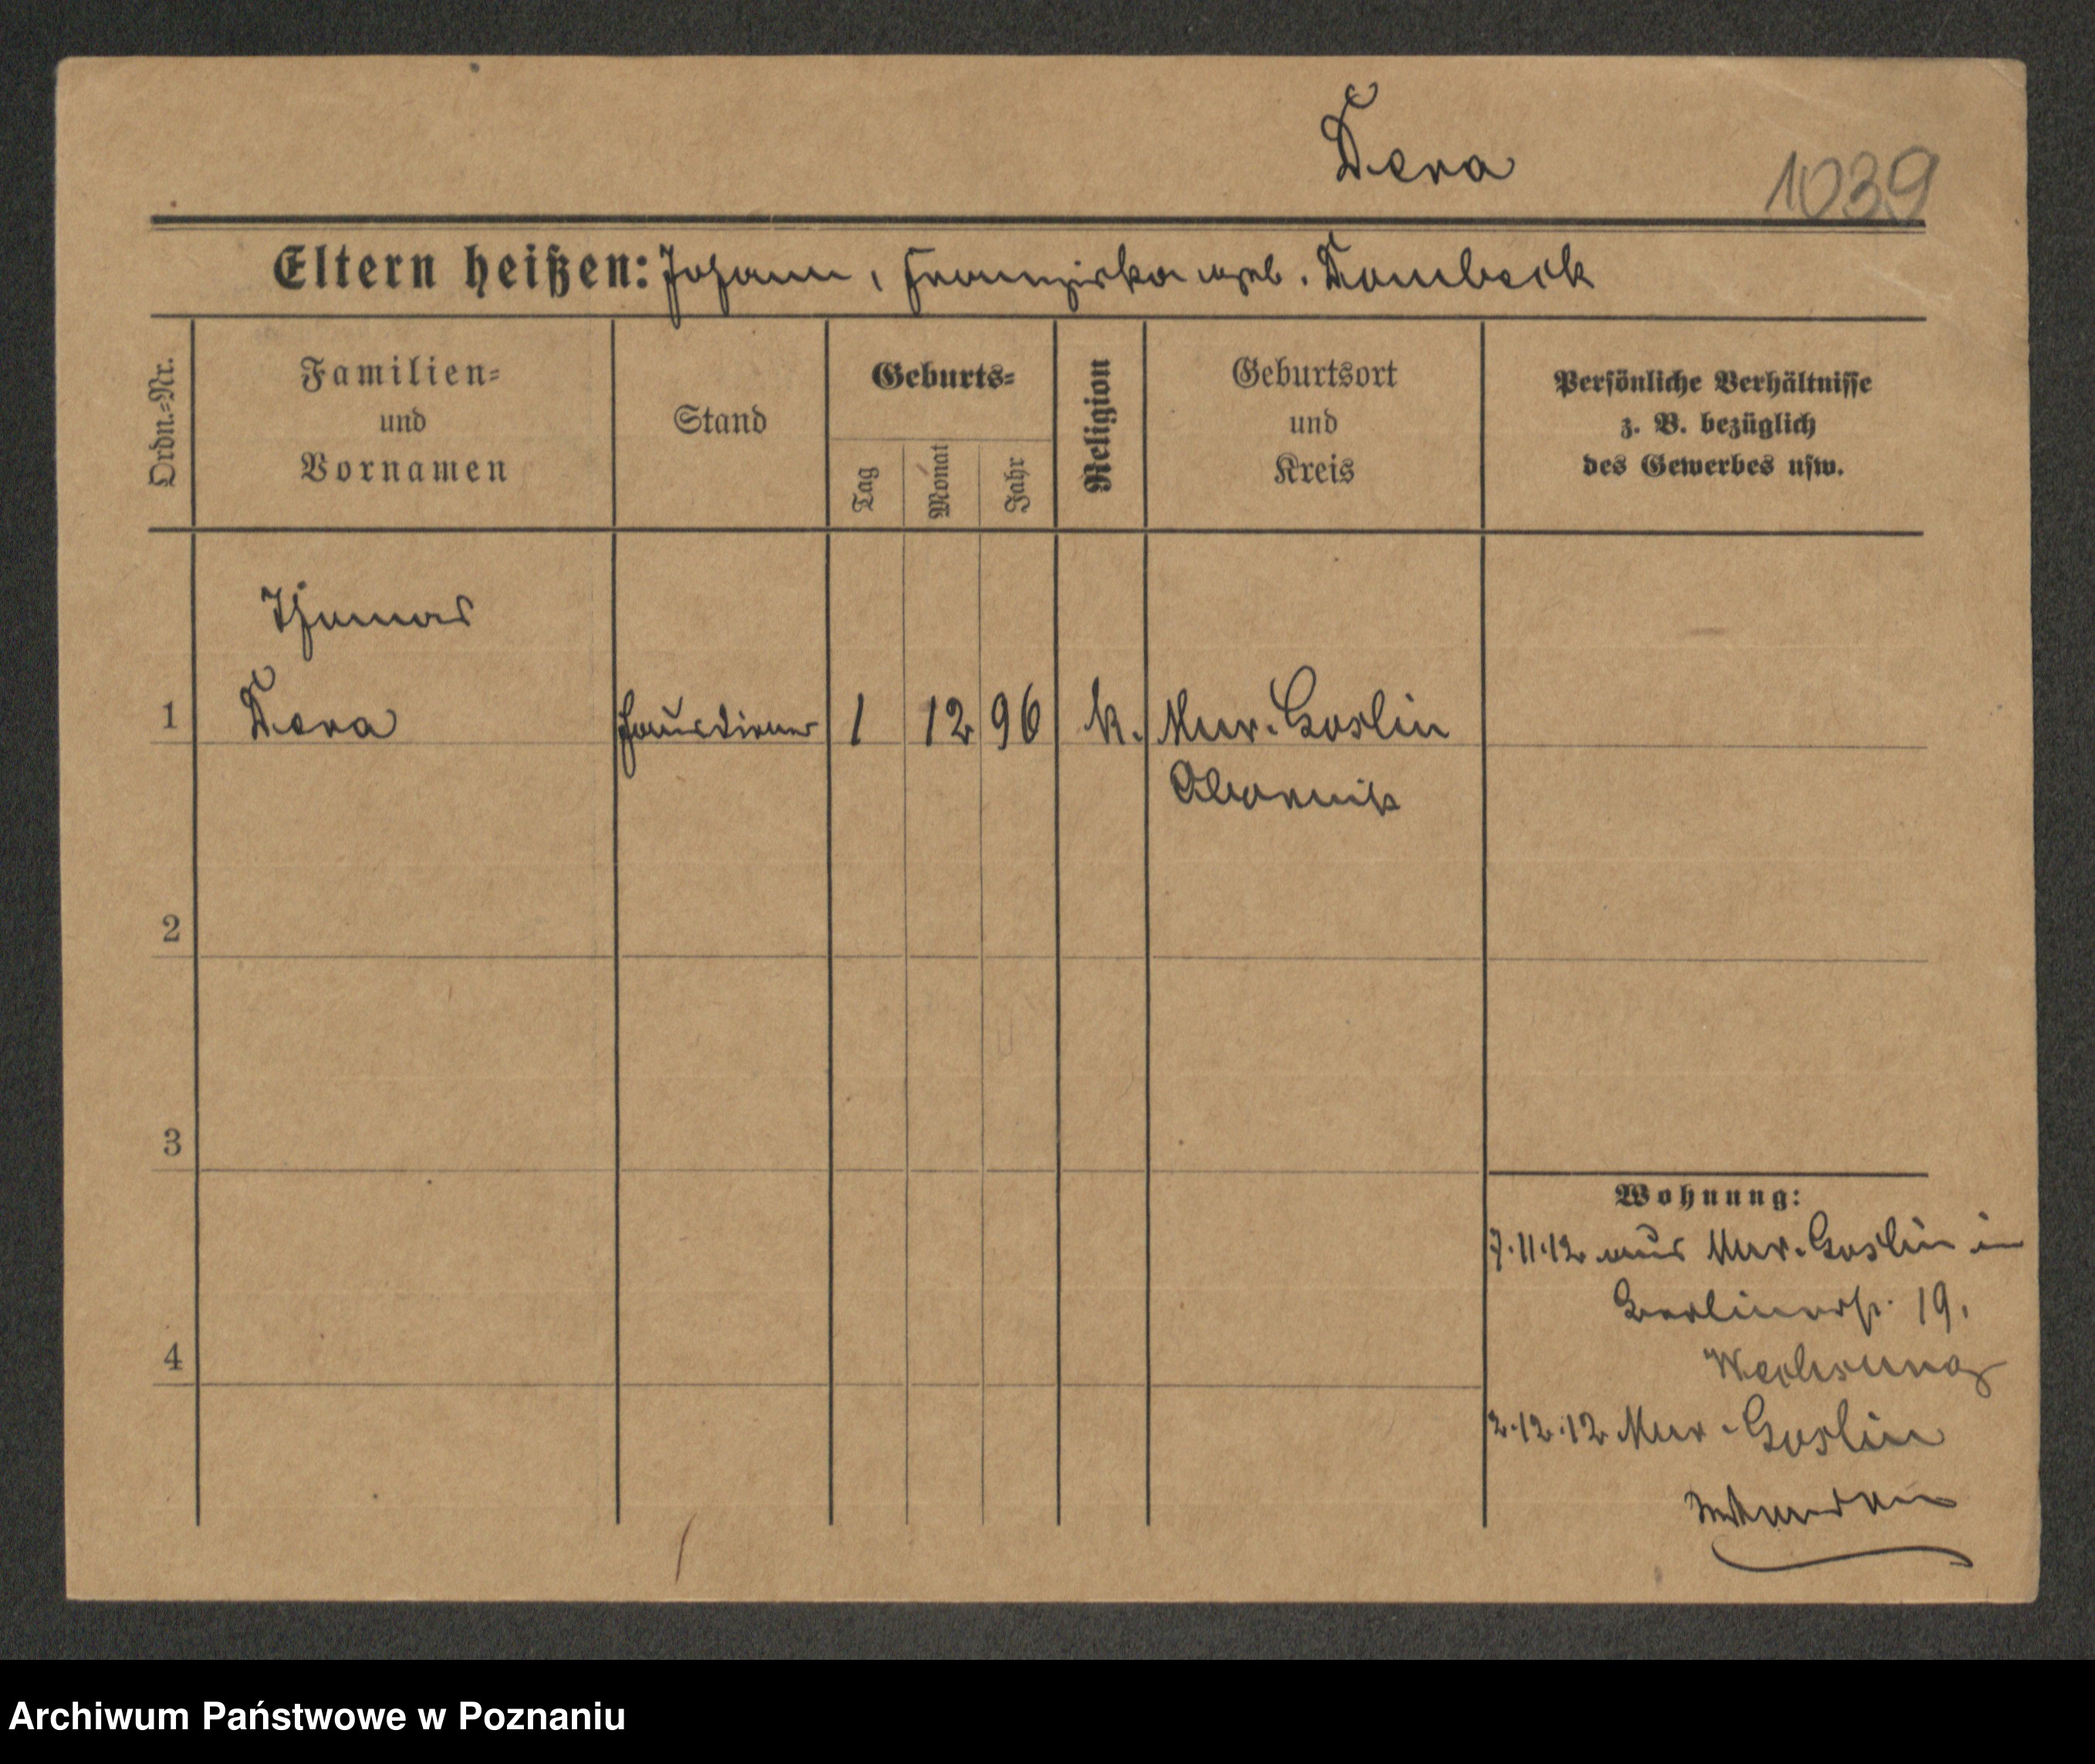 Dera
1039
Eltern heißen: Johann, Franziska geb. Dombeck
Ordn.-Nr.
Familien-
und
Vornamen
Stand
Geburts-
Tag
Monat
Jahr
Religion
Geburtsort
und
Kreis
Persönliche Verhältnisse
z. B. bezüglich
des Gewerbes usw.
Thomas
1 Dera Hausdiener 1 12 96 k. Mur. Goslin
Obornik
2
3
4
Wohnung:
7.11.12 aus Mur. Goslin in
Berlinerstr. 19.
2.12.12 Mur. Goslin
Archiwum Państwowe w Poznaniu